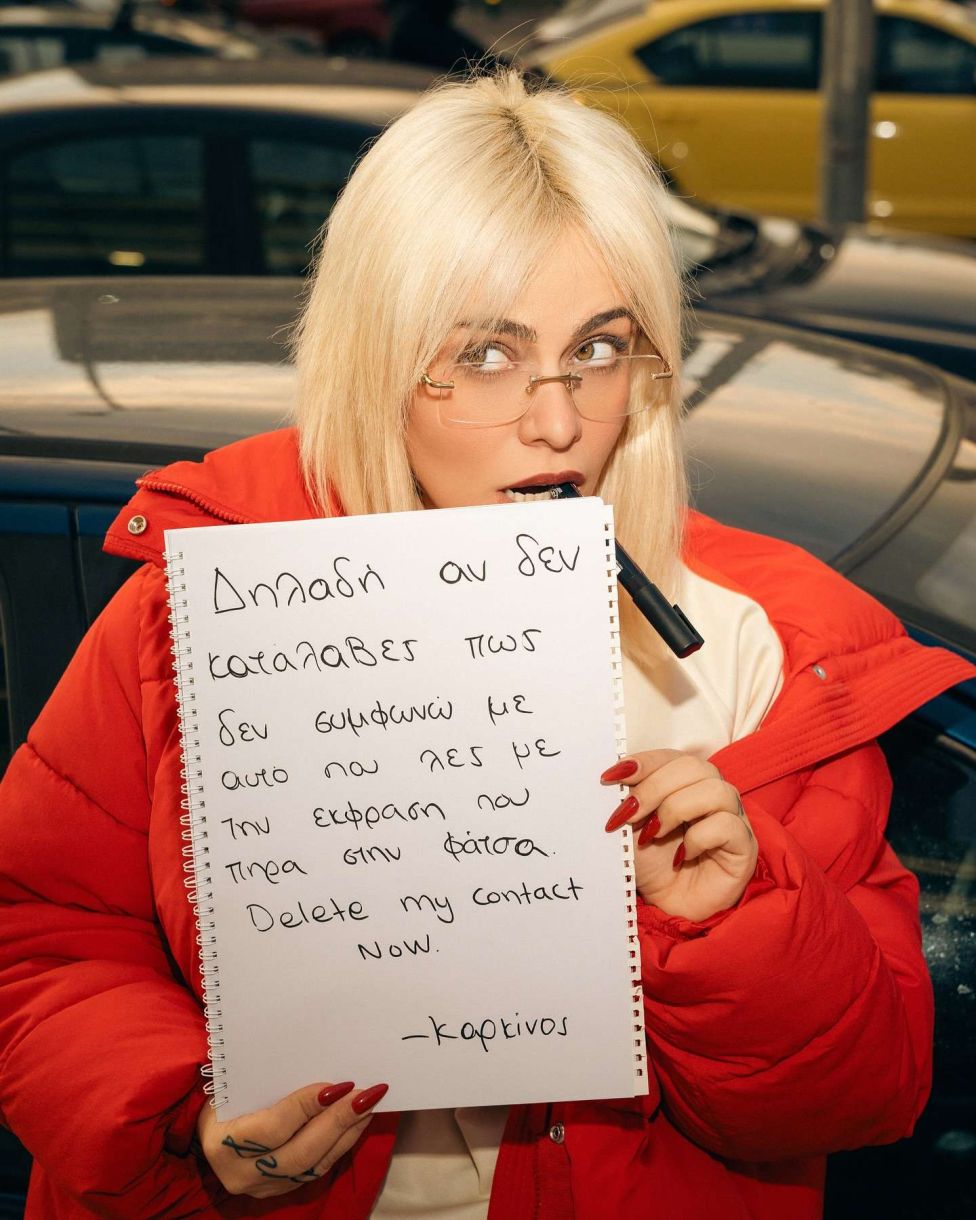 Δηλαδή αν δεν
καταλαβες πως
δεν συμφωνώ με
αυτό που λες με
την εκφραση που
πηρα στην φάτσα.
Delete my contact
Now.
-Καρκίνος